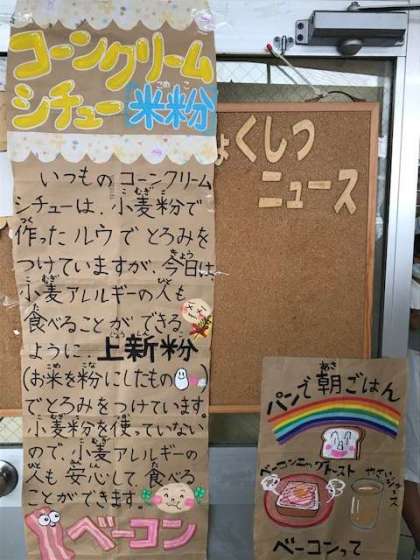 コーンクリーム
シチュー 米粉
こめこ
いつものコーンクリーム
シチューは、小麦粉で
こむぎこ
作ったルウでとろみを
つく
つけていますが、今日は
きょう
小麦アレルギーの人も
こむぎ ひと
食べることができる
た
ように、上新粉
(お米を粉にしたもの)
こめ こな
でとろみをつけています。
小麦粉を使っていない
こむぎこ つか
ので、小麦アレルギーの
こむぎ
人も安心して食べる
ひと あんしん た
ことができます。
ベーコン
ょくしつ
ニュース
パンで朝ごはん
あさ
ベーコンエッグトースト
やさいジュース
ベーコンって